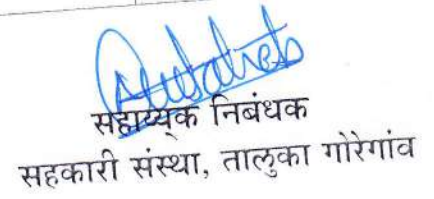 सहाय्यक निबंधक
सहकारी संस्था, तालुका गोरेगांव